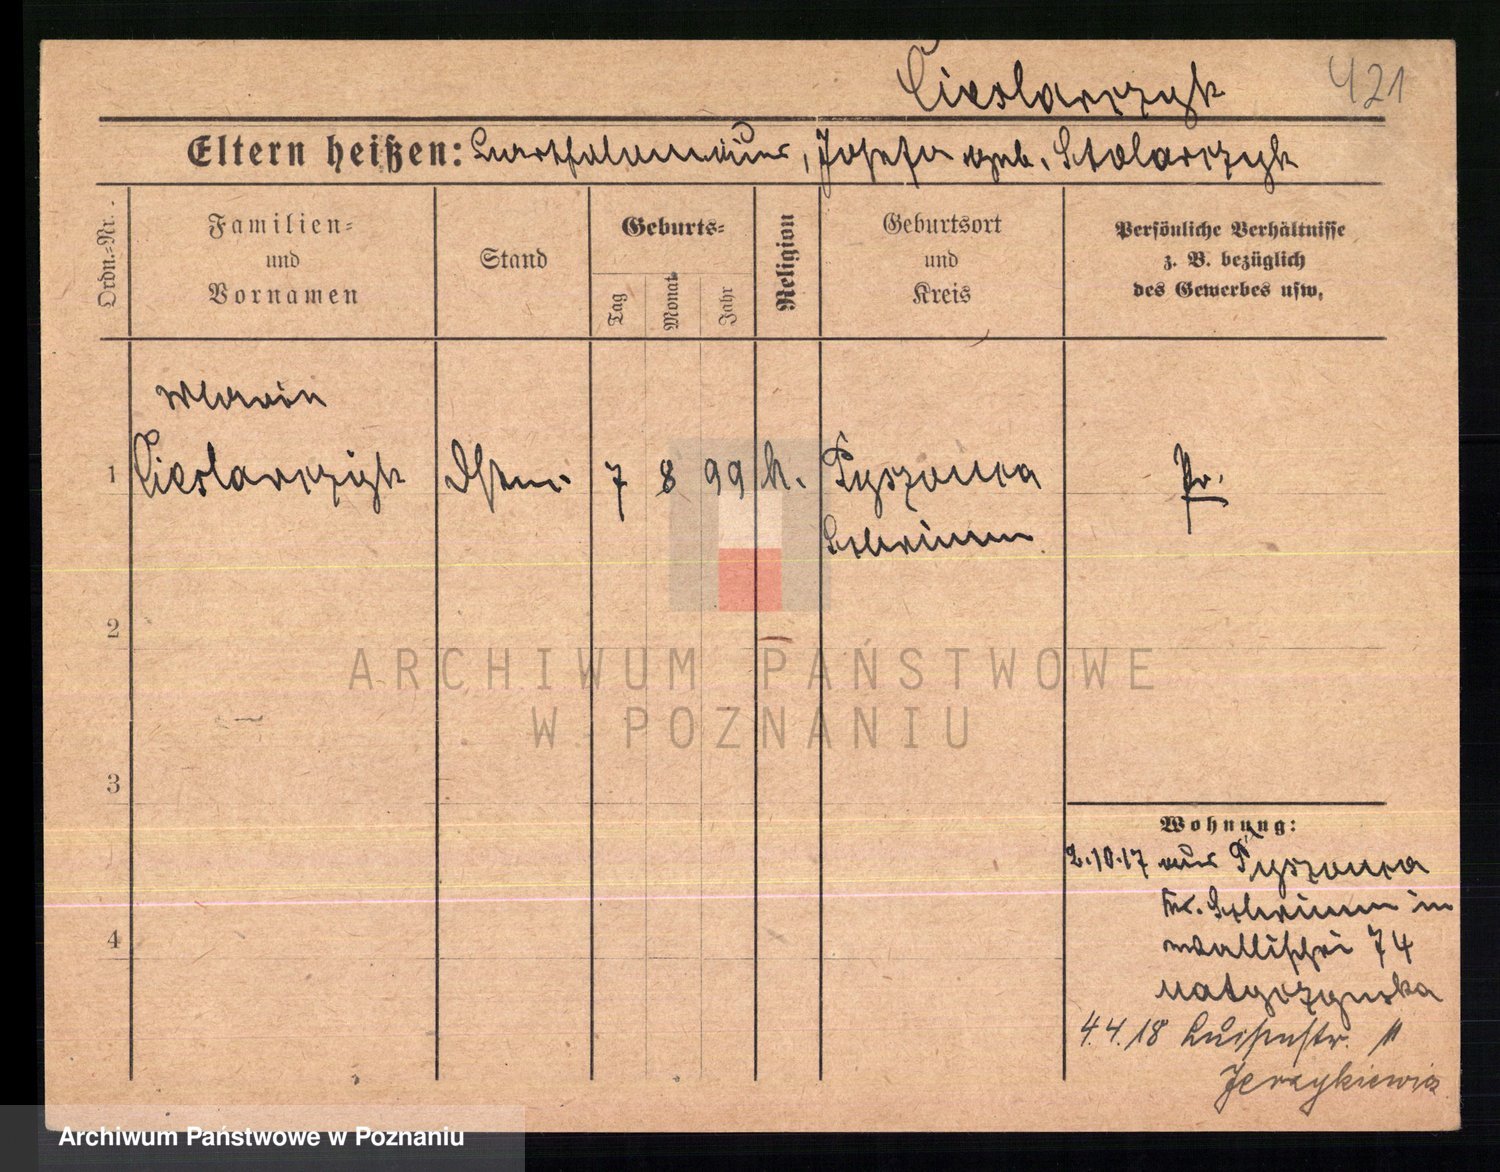 Cieslarczyk 421
Eltern heißen: Bartholomäus, Josefa geb. Stolarczyk
Ordn.-Nr.
Familien-
und
Vornamen
Stand
Geburts-
Tag
Monat
Jahr
Religion
Geburtsort
und
Kreis
Persönliche Verhältnisse
z. B. bezüglich
des Gewerbes usw.
Maria
1 Cieslarczyk Dstm. 7 8 99 k. Pyszonca Pr.
Schrimm
2
3
4
Wohnung:
2.10.17 aus Pyszonca
Kr. Schrimm in
Wallischei 74
4.4.18 Luisenstr. 11
Jerzykiewicz
ARCHIWUM PAŃSTWOWE
W POZNANIU
Archiwum Państwowe w Poznaniu